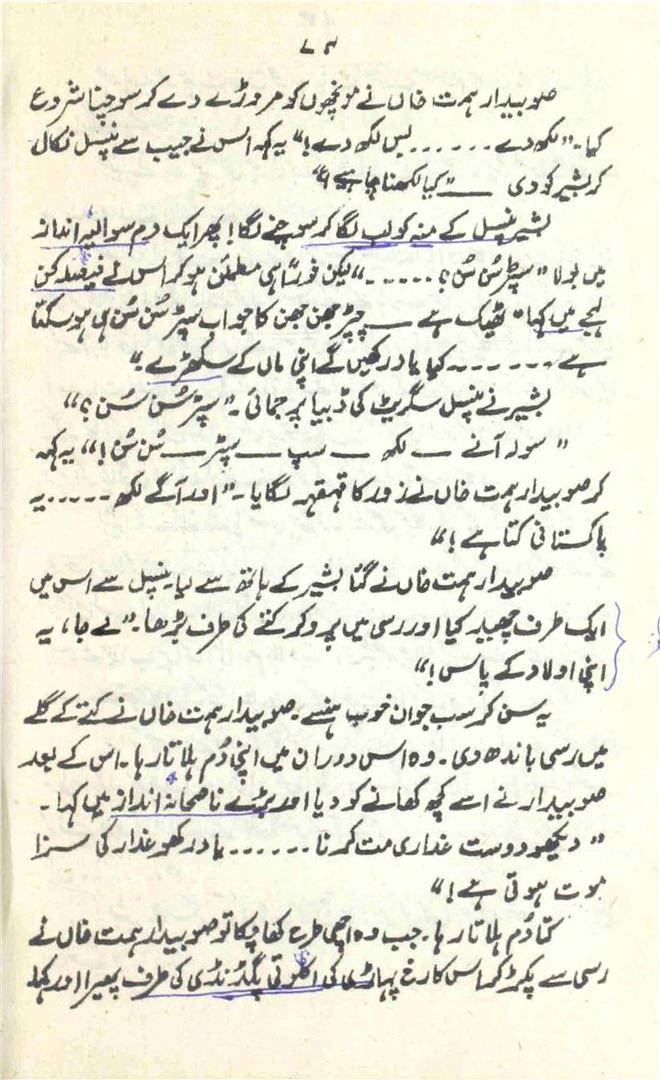 ۷۴
صوبیدار ہمت خاں نے مونچھوں کو مروڑے دے کر سوچنا شروع
کیا۔ "لکھ دے ...... بس لکھ دے!" یہ کہہ اس نے جیب سے پنسل نکال
کر بشیر کو دی ــــ "کیا لکھنا چاہیے؟"
بشیر پنسل کے منہ کو لب لگا کر سوچنے لگا! پھر ایک دم سوالیہ انداز
میں بولا "سپڑ سُن سُن؟ ......" لیکن فوراً ہی مطمئن ہو کر اس نے فیصلہ کن
لہجے میں کہا "ٹھیک ہے ــــ چپڑ جھن جھن کا جواب سپڑ سُن سُن ہی ہو سکتا
ہے ....... کیا یاد رکھیں گے اپنی ماں کے سکھڑے۔"
بشیر نے پنسل سگریٹ کی ڈبیا پر جمائی۔ "سپڑ سُن سُن؟"
"سولہ آنے ــ لکھ ــ سپ ــ سپڑ ــ سُن سُن!" یہ کہہ
کر صوبیدار ہمت خاں نے زور کا قہقہہ لگایا۔ "اور آگے لکھ ..... یہ
پاکستانی کتا ہے!"
صوبیدار ہمت خاں نے گتا بشیر کے ہاتھ سے لیا۔ پنسل سے اس میں
ایک طرف چھید کیا اور رسی میں پرو کر کتے کی طرف بڑھا۔ "لے جا، یہ
اپنی اولاد کے پاس!"
یہ سن کر سب جوان خوب ہنسے۔ صوبیدار ہمت خاں نے کتے کے گلے
میں رسی باندھ دی۔ وہ اس دوران میں اپنی دُم ہلاتا رہا۔ اس کے بعد
صوبیدار نے اسے کچھ کھانے کو دیا اور بڑے ناصحانہ انداز میں کہا۔
"دیکھو دوست غداری مت کرنا ...... یاد رکھو غدار کی سزا
موت ہوتی ہے!"
کتا دُم ہلاتا رہا۔ جب وہ اچھی طرح کھا چکا تو صوبیدار ہمت خاں نے
رسی سے پکڑ کر اس کا رخ پہاڑی کی اکلوتی پگڈنڈی کی طرف پھیرا اور کہا۔